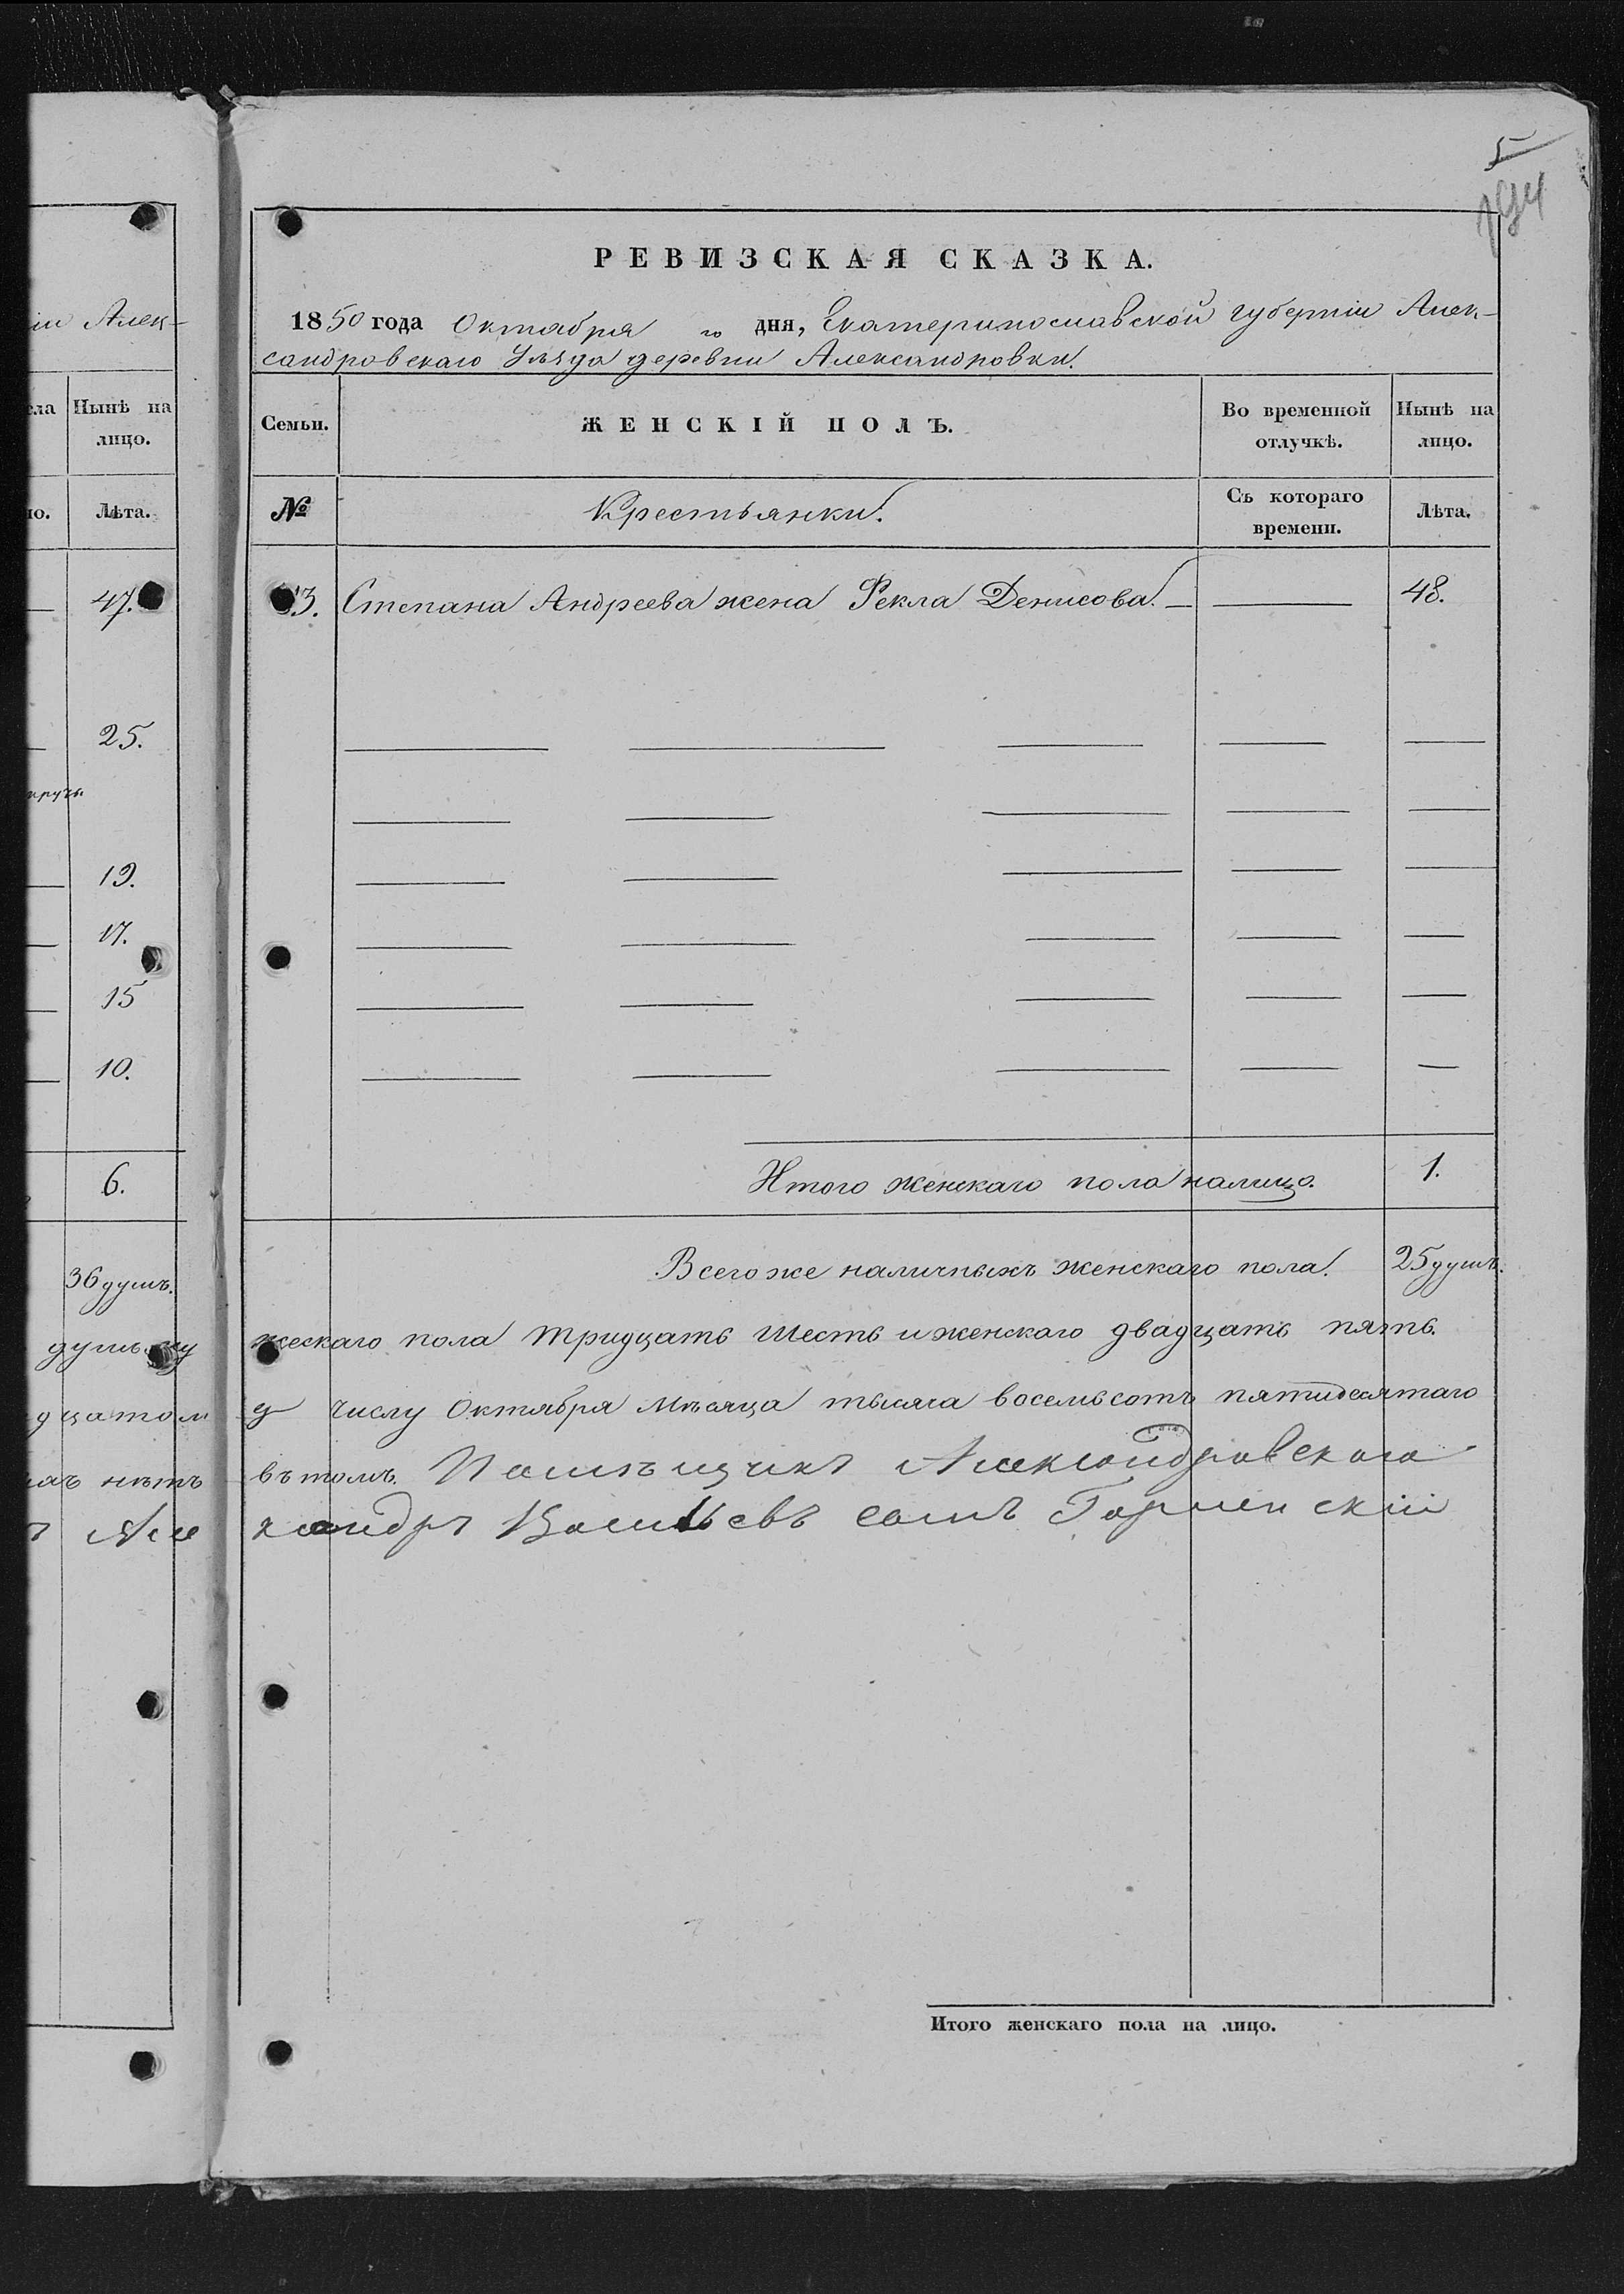 5
194
РЕВИЗСКАЯ СКАЗКА.
1850 года Октября го дня, Екатеринославской губерніи Алек-
сандровскаго Уѣзда деревни Александровки.
Семьи.
ЖЕНСКІЙ ПОЛЪ.
Во временной отлучкѣ.
Нынѣ на лицо.
№
Крестьянки.
Съ котораго времени.
Лѣта.
3. Степана Андреева жена Фекла Денисова. 48.
Итого женскаго пола налицо. 1.
Всего же наличныхъ женскаго пола. 25 душъ.
жескаго пола тридцать шесть и женскаго двадцать пять.
числу Октября мѣсяца тысяча восемьсотъ пятидесятаго
въ томъ. Помѣщикъ Александровскаго
ксандръ Васильевъ сынъ
Итого женскаго пола на лицо.
іи Алек-
ела
Нынѣ на лицо.
но.
Лѣта.
47.
25.
19.
17.
15
10.
6.
36 душъ.
душъ му
дцатом
нѣтъ
Але